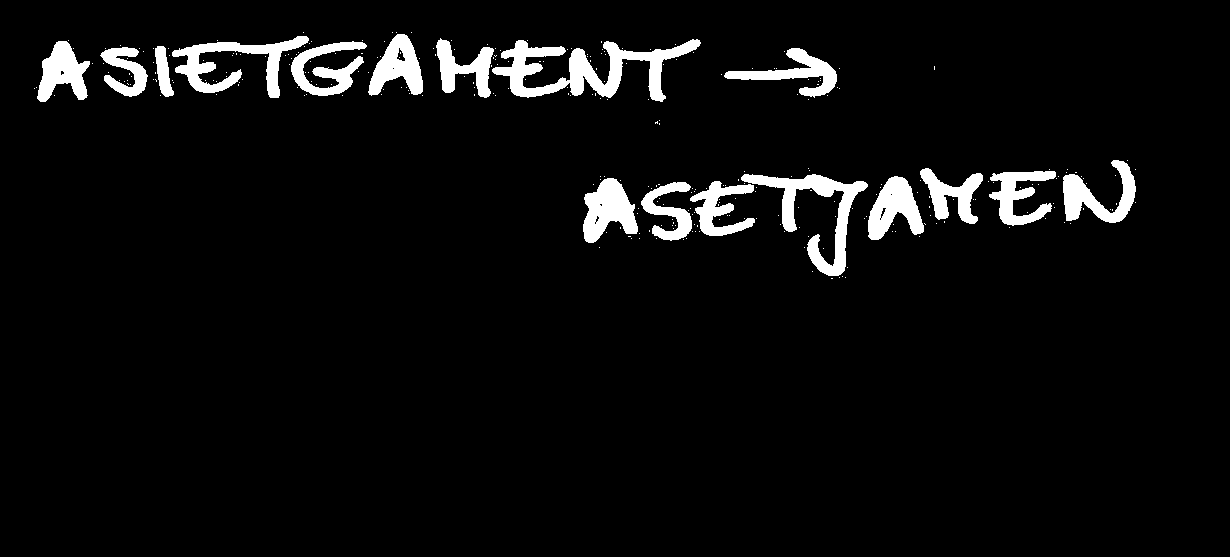 ASIETGAMENT →
ASETJAMEN